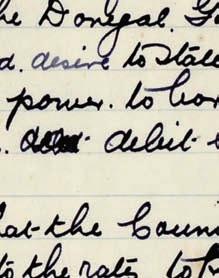 he Donegal. G
d. desire to state
power. to bor
debit
hat the Counc
to the rates to